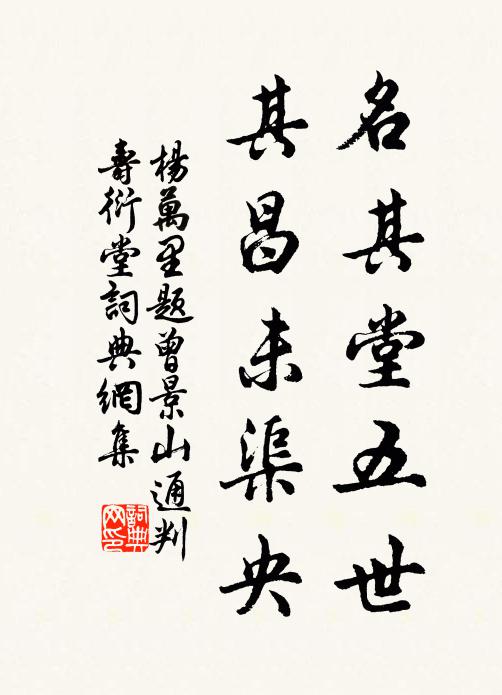 名其堂五世
其昌未渠央
楊萬里題曾景山通判
壽衍堂詞典網集
詞典网印